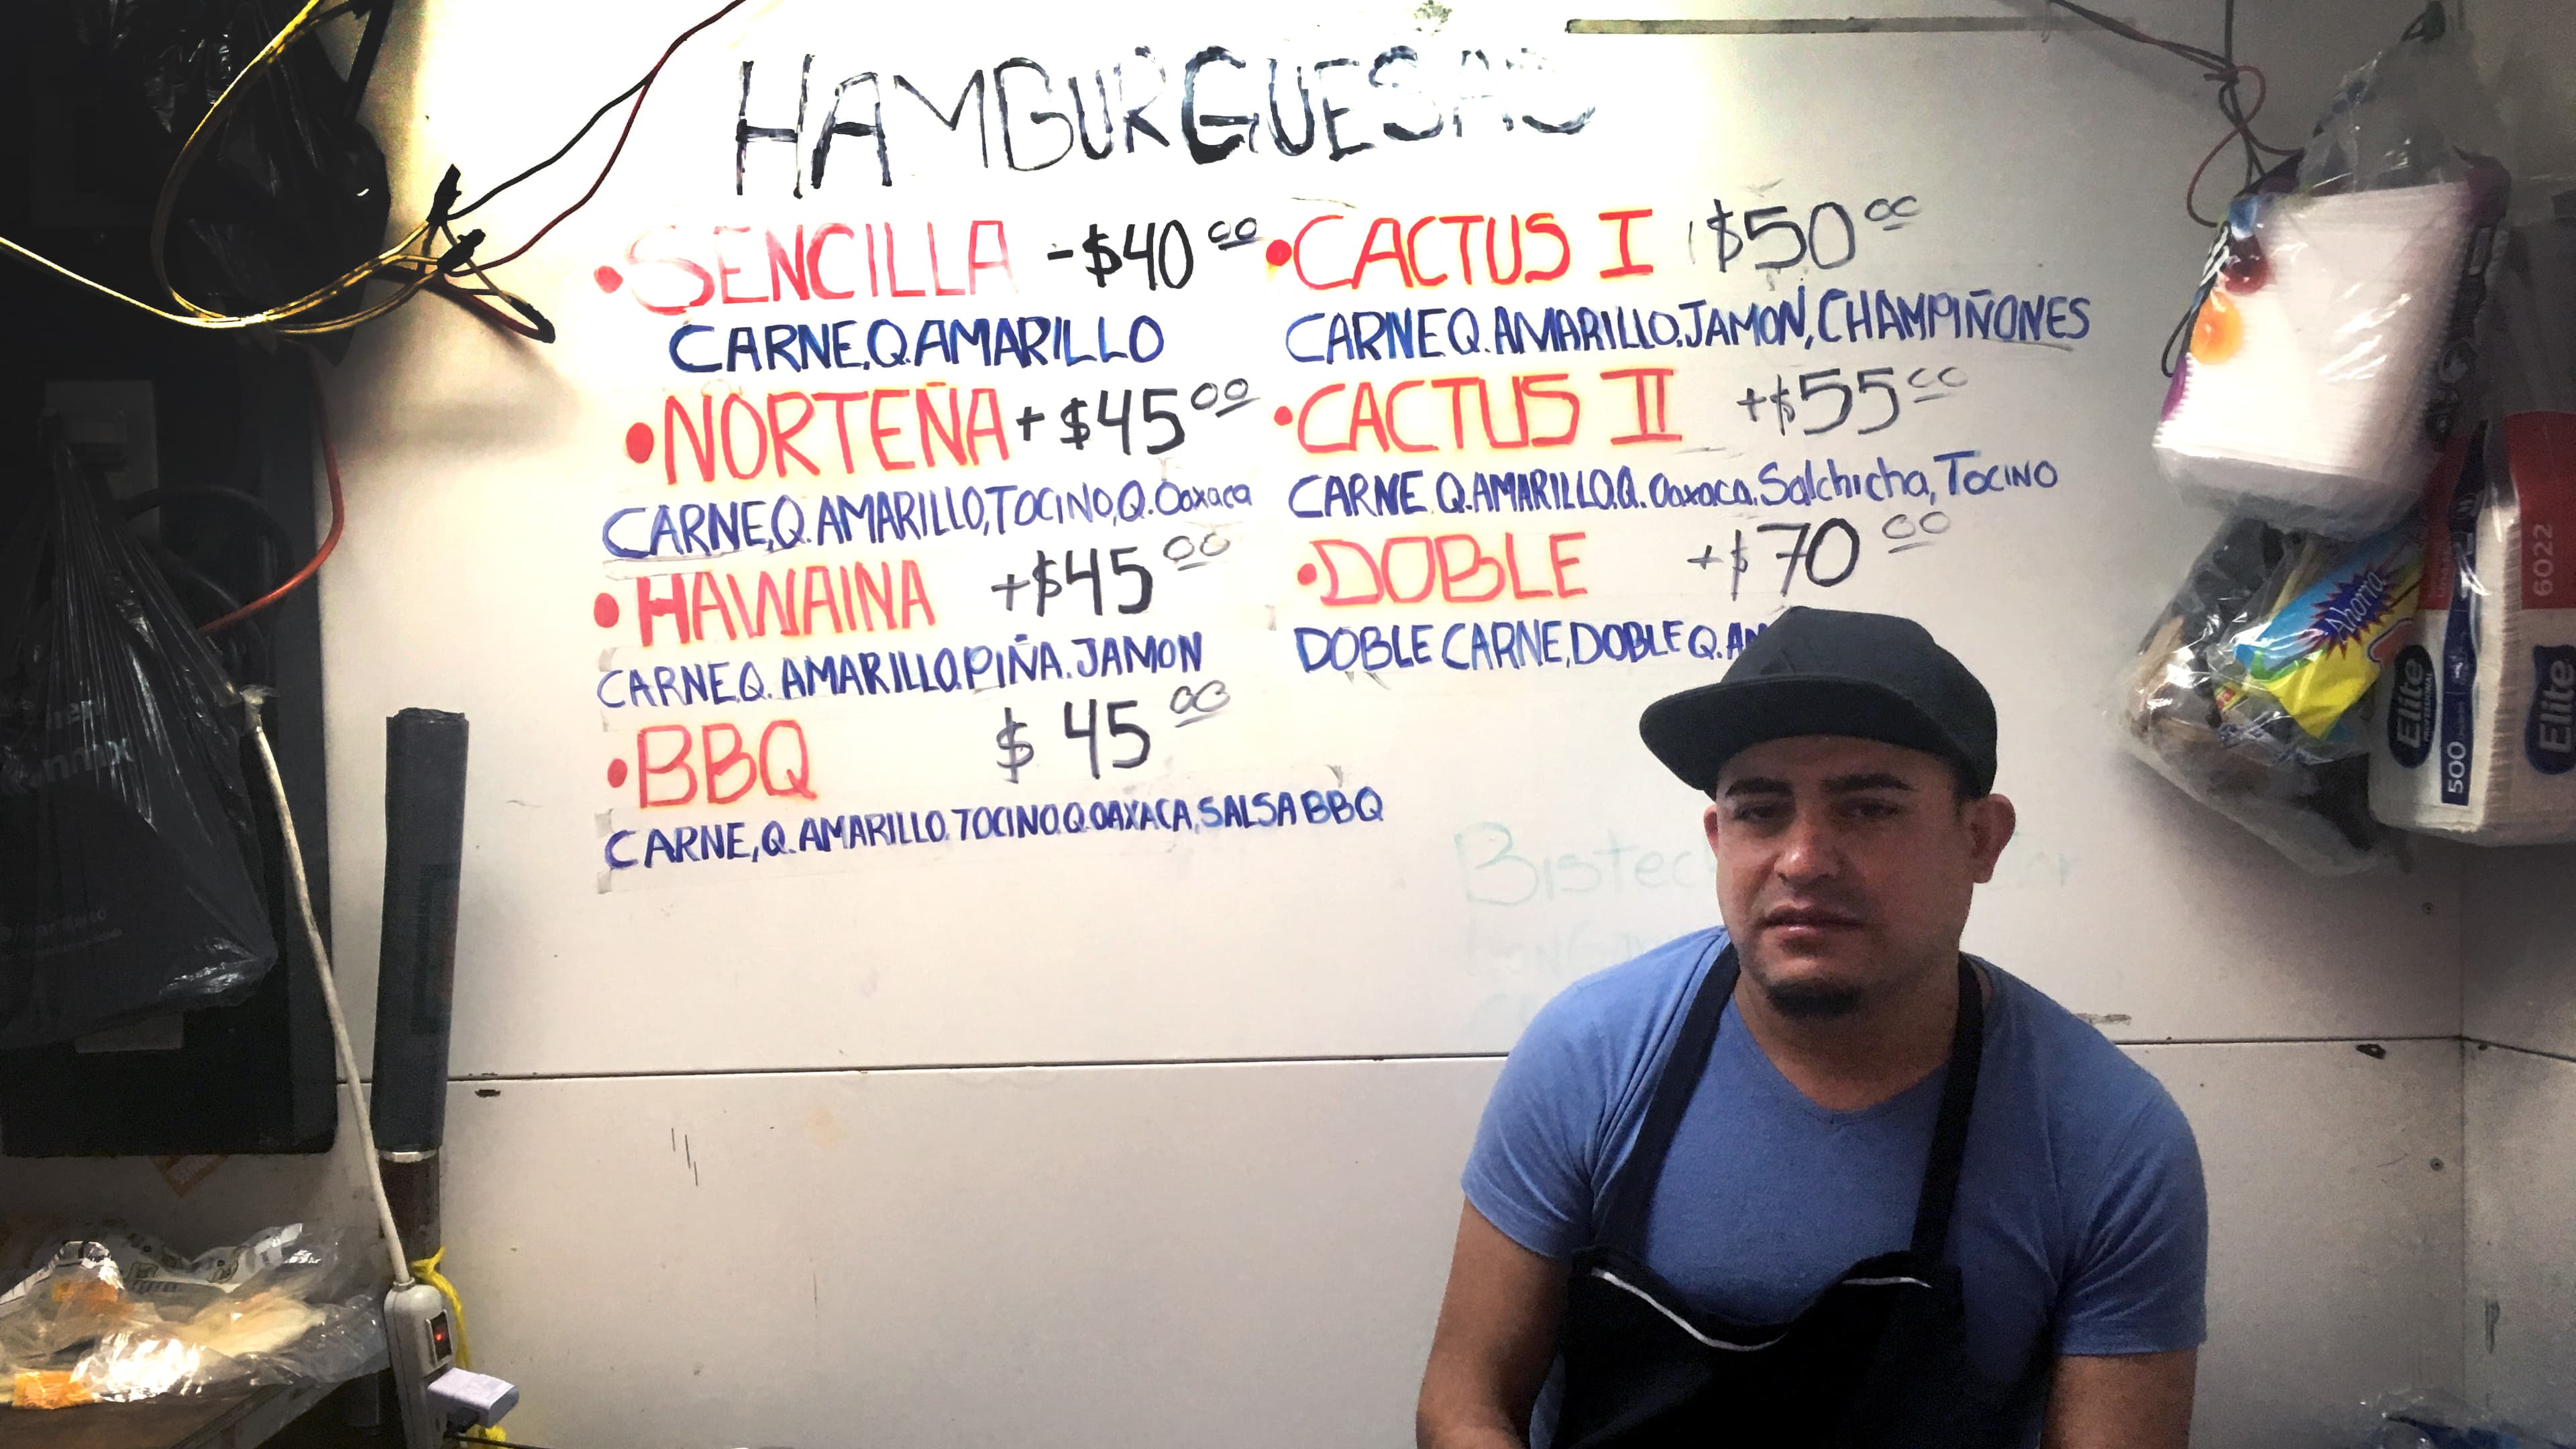 HAMBURGUESAS
•SENCILLA -$40 00
CARNE,Q.AMARILLO
•NORTEÑA + $45 00
CARNE,Q.AMARILLO,TOCINO,Q.Oaxaca
•HAWAINA +$45 00
CARNE,Q.AMARILLO,PIÑA.JAMON
•BBQ $45 00
CARNE,Q.AMARILLO.TOCINO.Q.OAXACA,SALSA BBQ
•CACTUS I $50 00
CARNE Q.AMARILLO,JAMON,CHAMPIÑONES
•CACTUS II +$55 00
CARNE Q.AMARILLO.Q.Oaxaca.Salchicha,Tocino
•DOBLE +$70 00
DOBLE CARNE,DOBLE Q.AM
Bistec
Ahorra
6022
Elite
PROFESSIONAL
500
Elite